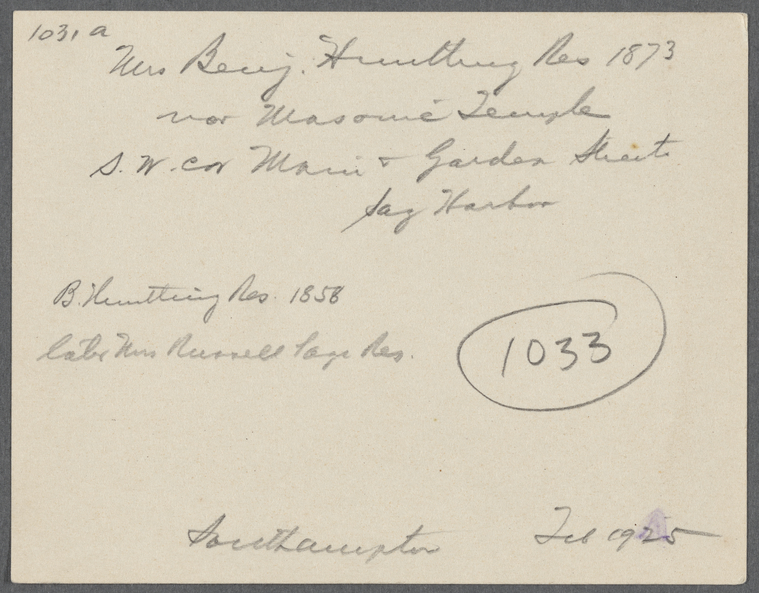 1031 a
Mrs Benj. Huntting Res 1873
now Masonic Temple
S. W. cor Main & Garden Streets
Sag Harbor
B. Huntting Res. 1858
later Mrs Russell Sage Res.
1033
Southampton Feb 1925